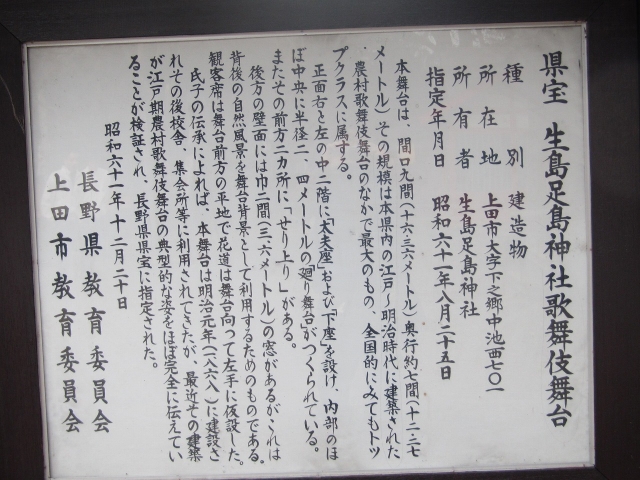 県宝 生島足島神社歌舞伎舞台
種別 建造物
所在地 上田市大字下之郷中池西七〇一
所有者 生島足島神社
指定年月日 昭和六十一年八月二十五日
本舞台は、間口九間(十六・三六メートル)奥行約七間(十二・二七
メートル)その規模は本県内の江戸〜明治時代に建築された
農村歌舞伎舞台のなかで最大のもの、全国的にみてもトッ
プクラスに属する。
正面右と左の中二階に「太夫座」および「下座」を設け、内部のほ
ぼ中央に半径二、四メートルの「廻り舞台」がつくられている。
またその前方二カ所に「せり上り」がある。
後方の壁面には巾二間(三・六メートル)の窓があるがこれは
背後の自然風景を舞台背景として利用するためのものである。
観客席は舞台前方の平地で花道は舞台向って左手に仮設した。
氏子の伝承によれば、本舞台は明治元年(一八六八)に建設さ
れその後校舎 集会所等に利用されてきたが、最近その建築
が江戸期農村歌舞伎舞台の典型的な姿をほぼ完全に伝えてい
ることが検証され、長野県県宝に指定された。
昭和六十一年十二月二十日
長野県教育委員会
上田市教育委員会